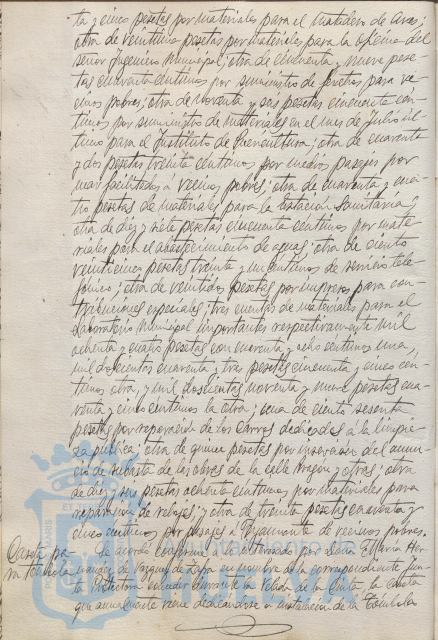 ta y cinco pesetas por materiales para el matadero de Aves;
otra de veintiuna pesetas por materiales para la oficina del
señor Ingeniero Municipal; otra de cincuenta y nueve pese-
tas cuarenta céntimos por suministro de efectos para ve-
cinos pobres; otra de noventa y seis pesetas cincuenta cén-
timos por suministro de materiales en el mes de Julio úl-
timo para el Instituto de Puericultura; otra de cuarenta
y dos pesetas treinta céntimos por medios pasajes por
mar facilitados á vecinos pobres; otra de cuarenta y cua-
tro pesetas de materiales para la Estación Sanitaria y
otra de diez y siete pesetas cincuenta céntimos por mate-
riales para el abastecimiento de aguas; otra de ciento
veinticinco pesetas treinta y un céntimos de servicio tele-
fónico; otra de veintidos pesetas por impresos para con-
tribuciones especiales; tres cuentas de materiales para el
Laboratorio Municipal importantes respectivamente mil
ochenta y cuatro pesetas con cuarenta y ocho céntimos una,
mil doscientos cuarenta y tres pesetas cincuenta y cinco cén-
timos otra, y mil doscientas noventa y nueve pesetas cua-
renta y cinco céntimos la otra; una de ciento sesenta
pesetas por reparación de los carros dedicados á la limpie-
za pública; otra de quince pesetas por inserción del anun-
cio de subasta de las obras de la calle Aragón y otras; otra
de diez y seis pesetas ochenta céntimos por materiales para
reparación de relojes; y otra de treinta pesetas cuarenta y
cinco céntimos por pasajes á Ayamonte de vecinos pobres.
Caseta pa-
ra Tómbola
Se acordó conforme á lo interesado por Doña María Her-
nandez de Vazquez de Zapa en nombre de la correspondiente Jun-
ta Protectora conceder durante la Velada de la Cinta, la Caseta
que anualmente viene dedicandose á instalación de la Tómbola